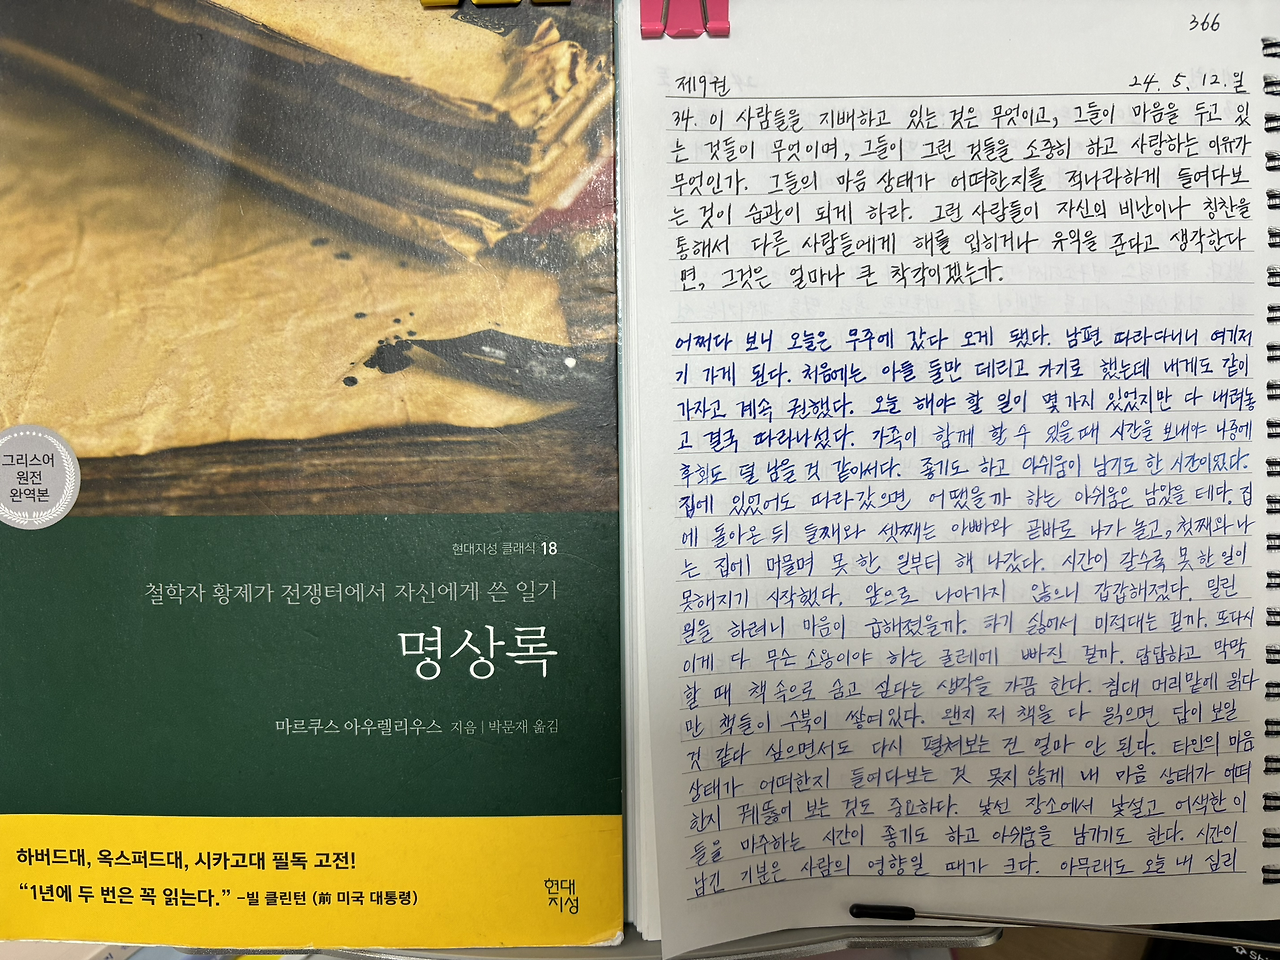 그리스어
원전
완역본
현대지성 클래식 18
철학자 황제가 전쟁터에서 자신에게 쓴 일기
명상록
마르쿠스 아우렐리우스 지음 | 박문재 옮김
하버드대, 옥스퍼드대, 시카고대 필독 고전!
“1년에 두 번은 꼭 읽는다.” –빌 클린턴 (前 미국 대통령)
현대
지성
366
제9권 24. 5. 12. 일
34. 이 사람들을 지배하고 있는 것은 무엇이고, 그들이 마음을 두고 있
는 것들이 무엇이며, 그들이 그런 것들을 소중히 하고 사랑하는 이유가
무엇인가. 그들의 마음 상태가 어떠한지를 적나라하게 들여다보
는 것이 습관이 되게 하라. 그런 사람들이 자신의 비난이나 칭찬을
통해서 다른 사람들에게 해를 입히거나 유익을 준다고 생각한다
면, 그것은 얼마나 큰 착각이겠는가.
어쩌다 보니 오늘은 무주에 갔다 오게 됐다. 남편 따라다니니 여기저
기 가게 된다. 처음에는 아들 둘만 데리고 가기로 했는데 내게도 같이
가자고 계속 권했다. 오늘 해야 할 일이 몇 가지 있었지만 다 내려놓
고 결국 따라나섰다. 가족이 함께 할 수 있을 때 시간을 보내야 나중에
후회도 덜 남을 것 같아서다. 좋기도 하고 아쉬움이 남기도 한 시간이었다.
집에 있었어도 따라갔으면 어땠을까 하는 아쉬움은 남았을 테다. 집
에 돌아온 뒤 둘째와 셋째는 아빠와 곧바로 나가 놀고, 첫째와 나
는 집에 머물며 못 한 일부터 해 나갔다. 시간이 갈수록 못 한 일이
못해지기 시작했다. 앞으로 나아가지 않으니 갑갑해졌다. 밀린
일을 하려니 마음이 급해졌을까. 하기 싫어서 미적대는 걸까. 또다시
이게 다 무슨 소용이야 하는 굴레에 빠진 걸까. 답답하고 막막
할 때 책 속으로 숨고 싶다는 생각을 가끔 한다. 침대 머리맡에 읽다
만 책들이 수북이 쌓여있다. 왠지 저 책을 다 읽으면 답이 보일
것 같다 싶으면서도 다시 펼쳐보는 건 얼마 안 된다. 타인의 마음
상태가 어떠한지 들여다보는 것 못지 않게 내 마음 상태가 어떠
한지 꿰뚫어 보는 것도 중요하다. 낯선 장소에서 낯설고 어색한 이
들을 마주하는 시간이 좋기도 하고 아쉬움을 남기기도 한다. 시간이
남긴 기분은 사람의 영향일 때가 크다. 아무래도 오늘 내 심리